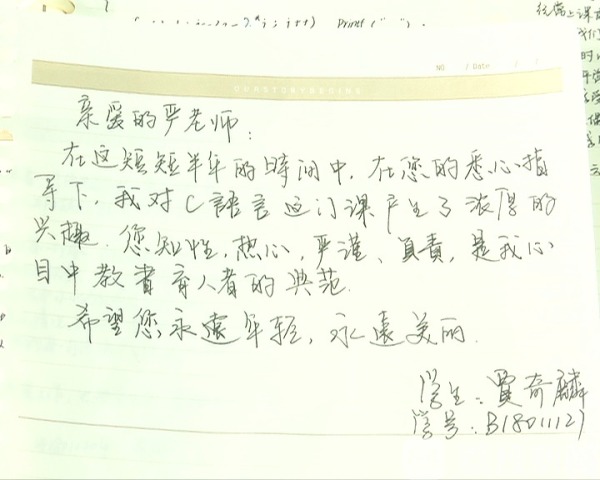 2*i; i++) Printf(" ");
NO / Date / /
OURSTORYBEGINS
亲爱的严老师:
在这短短半年的時间中,在您的悉心指
导下,我对C語言这门課产生了浓厚的
兴趣.您知性,热心,严谨、負責,是我心
目中教書育人者的典范.
希望您永遠年轻,永遠美丽.
学生:賈奇麟
学号:B18011127